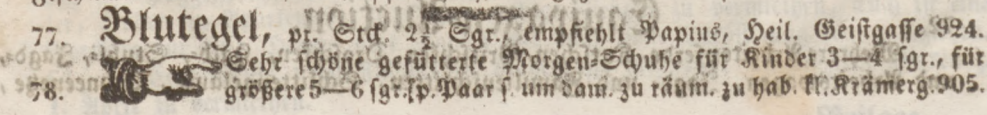 77. Blutegel, pr. Stck. 2½ Sgr., empfiehlt Papius, Heil. Geistgasse 924.
Sehr schöne gefütterte Morgen-Schuhe für Kinder 3—4 sgr., für
78. größere 5—6 sgr. p. Paar s. um dam. zu räum. zu hab. kl. Krämerg. 905.